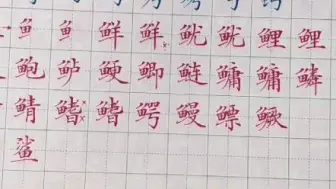 鱼 鱼 鲜 鲜 鱿 鱿 鲤 鲤
鲍 鲈 鲠 鲫 鲢 鳙 鳙 鳞
鲭 鳍 鳍 鳄 鳗 鳔 鳜
鲨